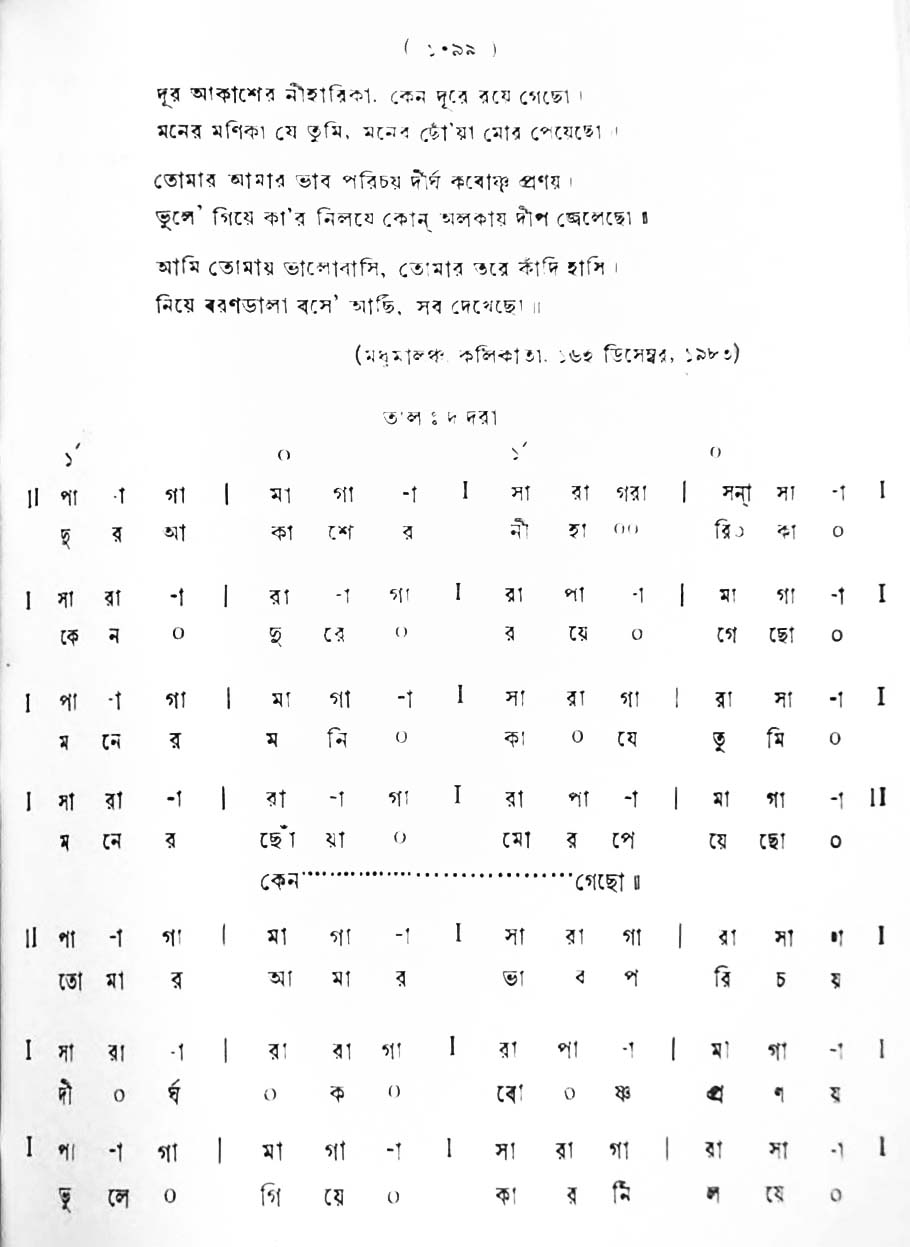 ( ১০৯৯ )
দূর আকাশের নীহারিকা, কেন দূরে রয়ে গেছো ।
মনের মণিকা যে তুমি, মনের ছোঁ'য়া মোর পেয়েছো ।
তোমার আমার ভাব পরিচয় দীর্ঘ কবোষ্ণ প্রণয় ।
ভুলে' গিয়ে কা'র নিলয়ে কোন্ অলকায় দীপ জ্বেলেছো ॥
আমি তোমায় ভালোবাসি, তোমার তরে কাঁদি হাসি ।
নিয়ে বরণডালা বসে' আছি, সব দেখেছো ॥
(মধুমালঞ্চ, কলিকাতা, ডিসেম্বর, ১৯৮৩)
তাল ঃ দাদরা
১´ ০ ১´ ০
II পা -া গা | মা গা -া I সা রা গরা | সন্া সা -া I
দূ র আ কা শে র নী হা ০০ রি০ কা ০
I সা রা -া | রা -া গা I রা পা -া | মা গা -া I
কে ন ০ দূ রে ০ র য়ে ০ গে ছো ০
I পা -া গা | মা গা -া I সা রা গা | রা সা -া I
ম নে র ম নি ০ কা ০ যে তু মি ০
I সা রা -া | রা -া গা I রা পা -া | মা গা -া II
ম নে র ছোঁ য়া ০ মো র পে য়ে ছো ০
কেন..............................গেছো ॥
II পা -া গা | মা গা -া I সা রা গা | রা সা -া I
তো মা র আ মা র ভা ব প রি চ য়
I সা রা -া | রা রা গা I রা পা -া | মা গা -া I
দী ০ র্ঘ ০ ক ০ বো ০ ষ্ণ প্র ণ য়
I পা -া গা | মা গা -া I সা রা গা | রা সা -া I
ভু লে ০ গি য়ে ০ কা র নি ল য়ে ০